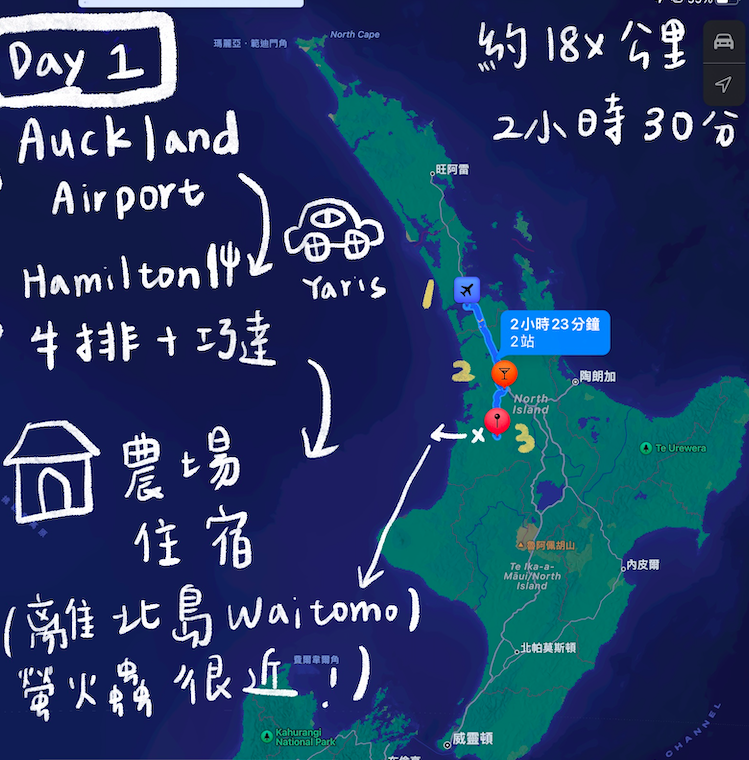 Day 1
約 18x 公里
2小時 30分
Auckland
Airport
Hamilton 吽
牛排 + 巧達
Yaris
農場
住宿
(離北島 Waitomo)
螢火蟲很近!)
瑪麗亞·範迪門角
North Cape
旺阿雷
1
2小時23分鐘
2站
2
陶朗加
North
Island
x
3
Te Urewera
魯阿佩胡山
Te Ika-a-
Māui/North
Island
內皮爾
北帕莫斯頓
費爾韋爾角
Kahurangi
National Park
威靈頓
CHANNEL